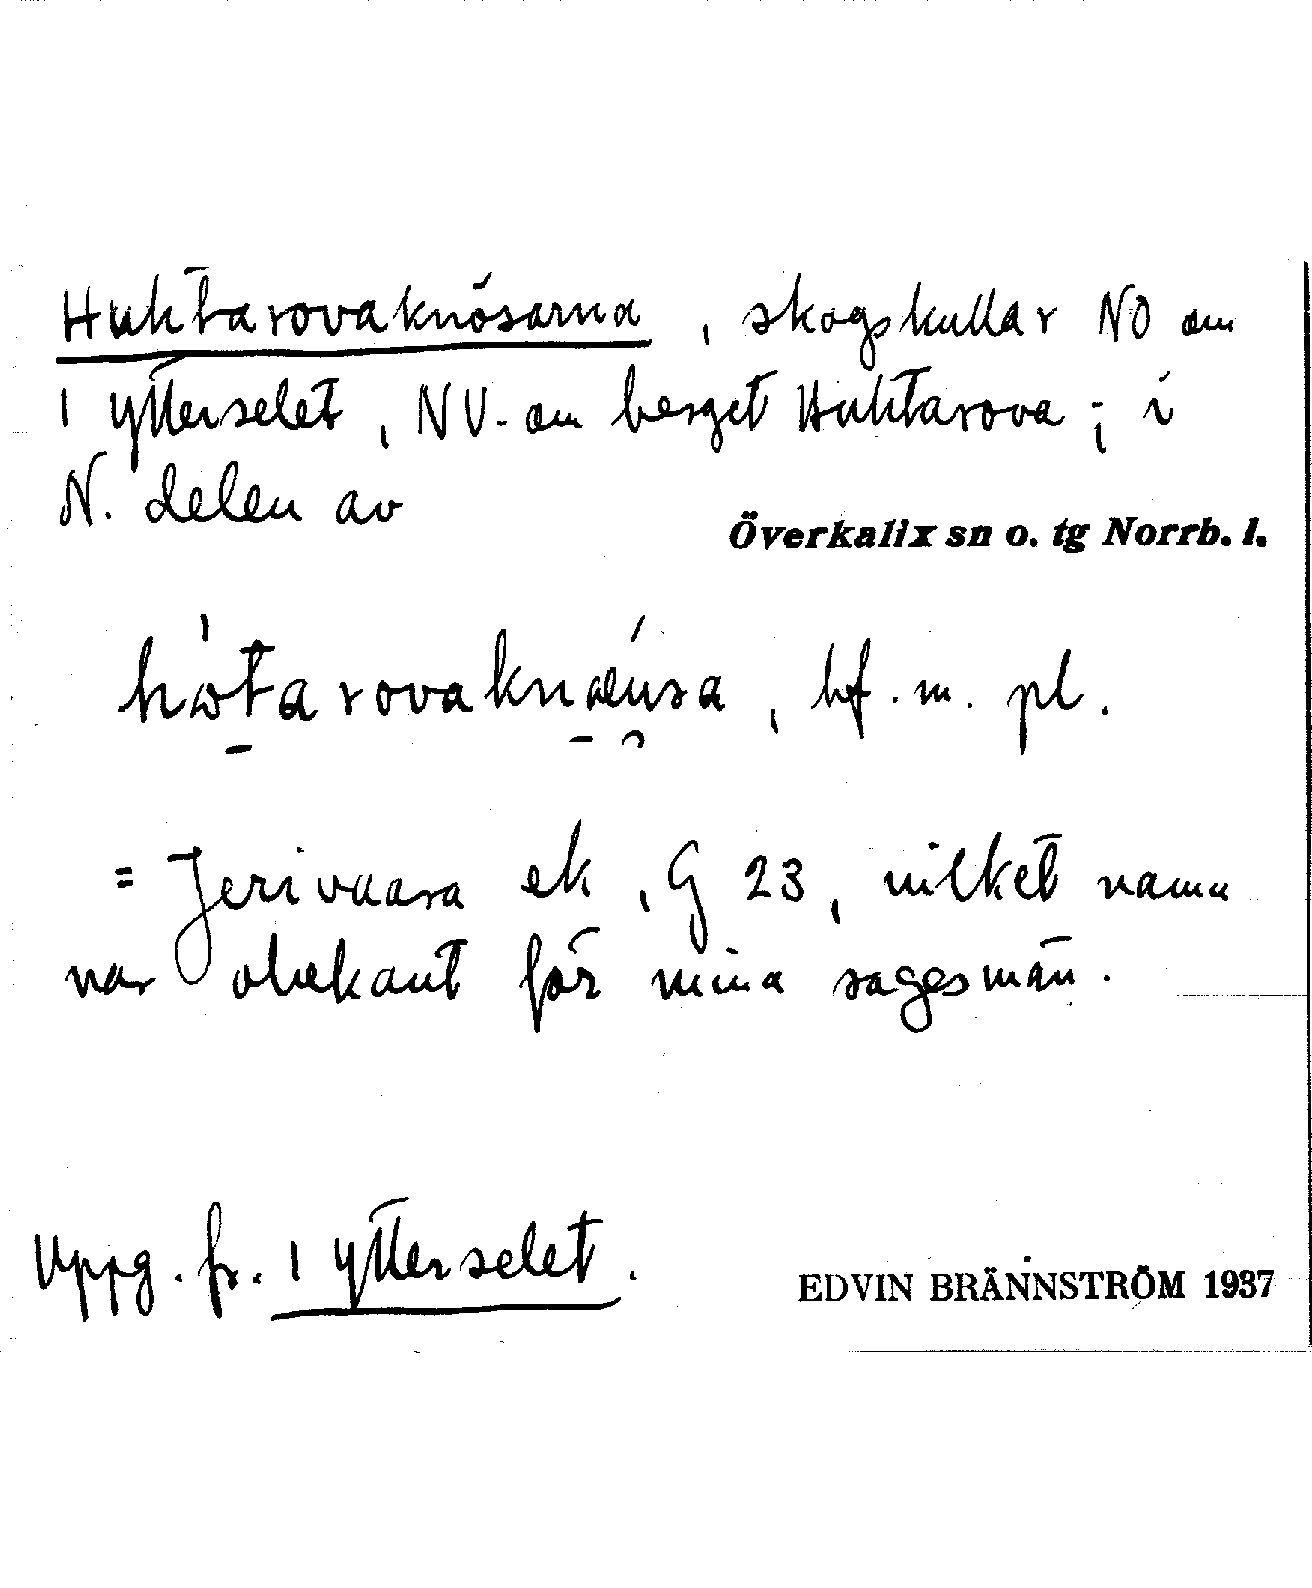 Huhtarovaknösarna, skogskullar NO om
1 Ytterselet, NV. om berget Huhtarova; i
N. delen av
Överkalix sn o. tg Norrb. l.
bf. m. pl.
= Jerivaara ek, G 23, vilket namn
var obekant för mina sagesmän.
Uppg. fr. 1 Ytterselet.
EDVIN BRÄNNSTRÖM 1937